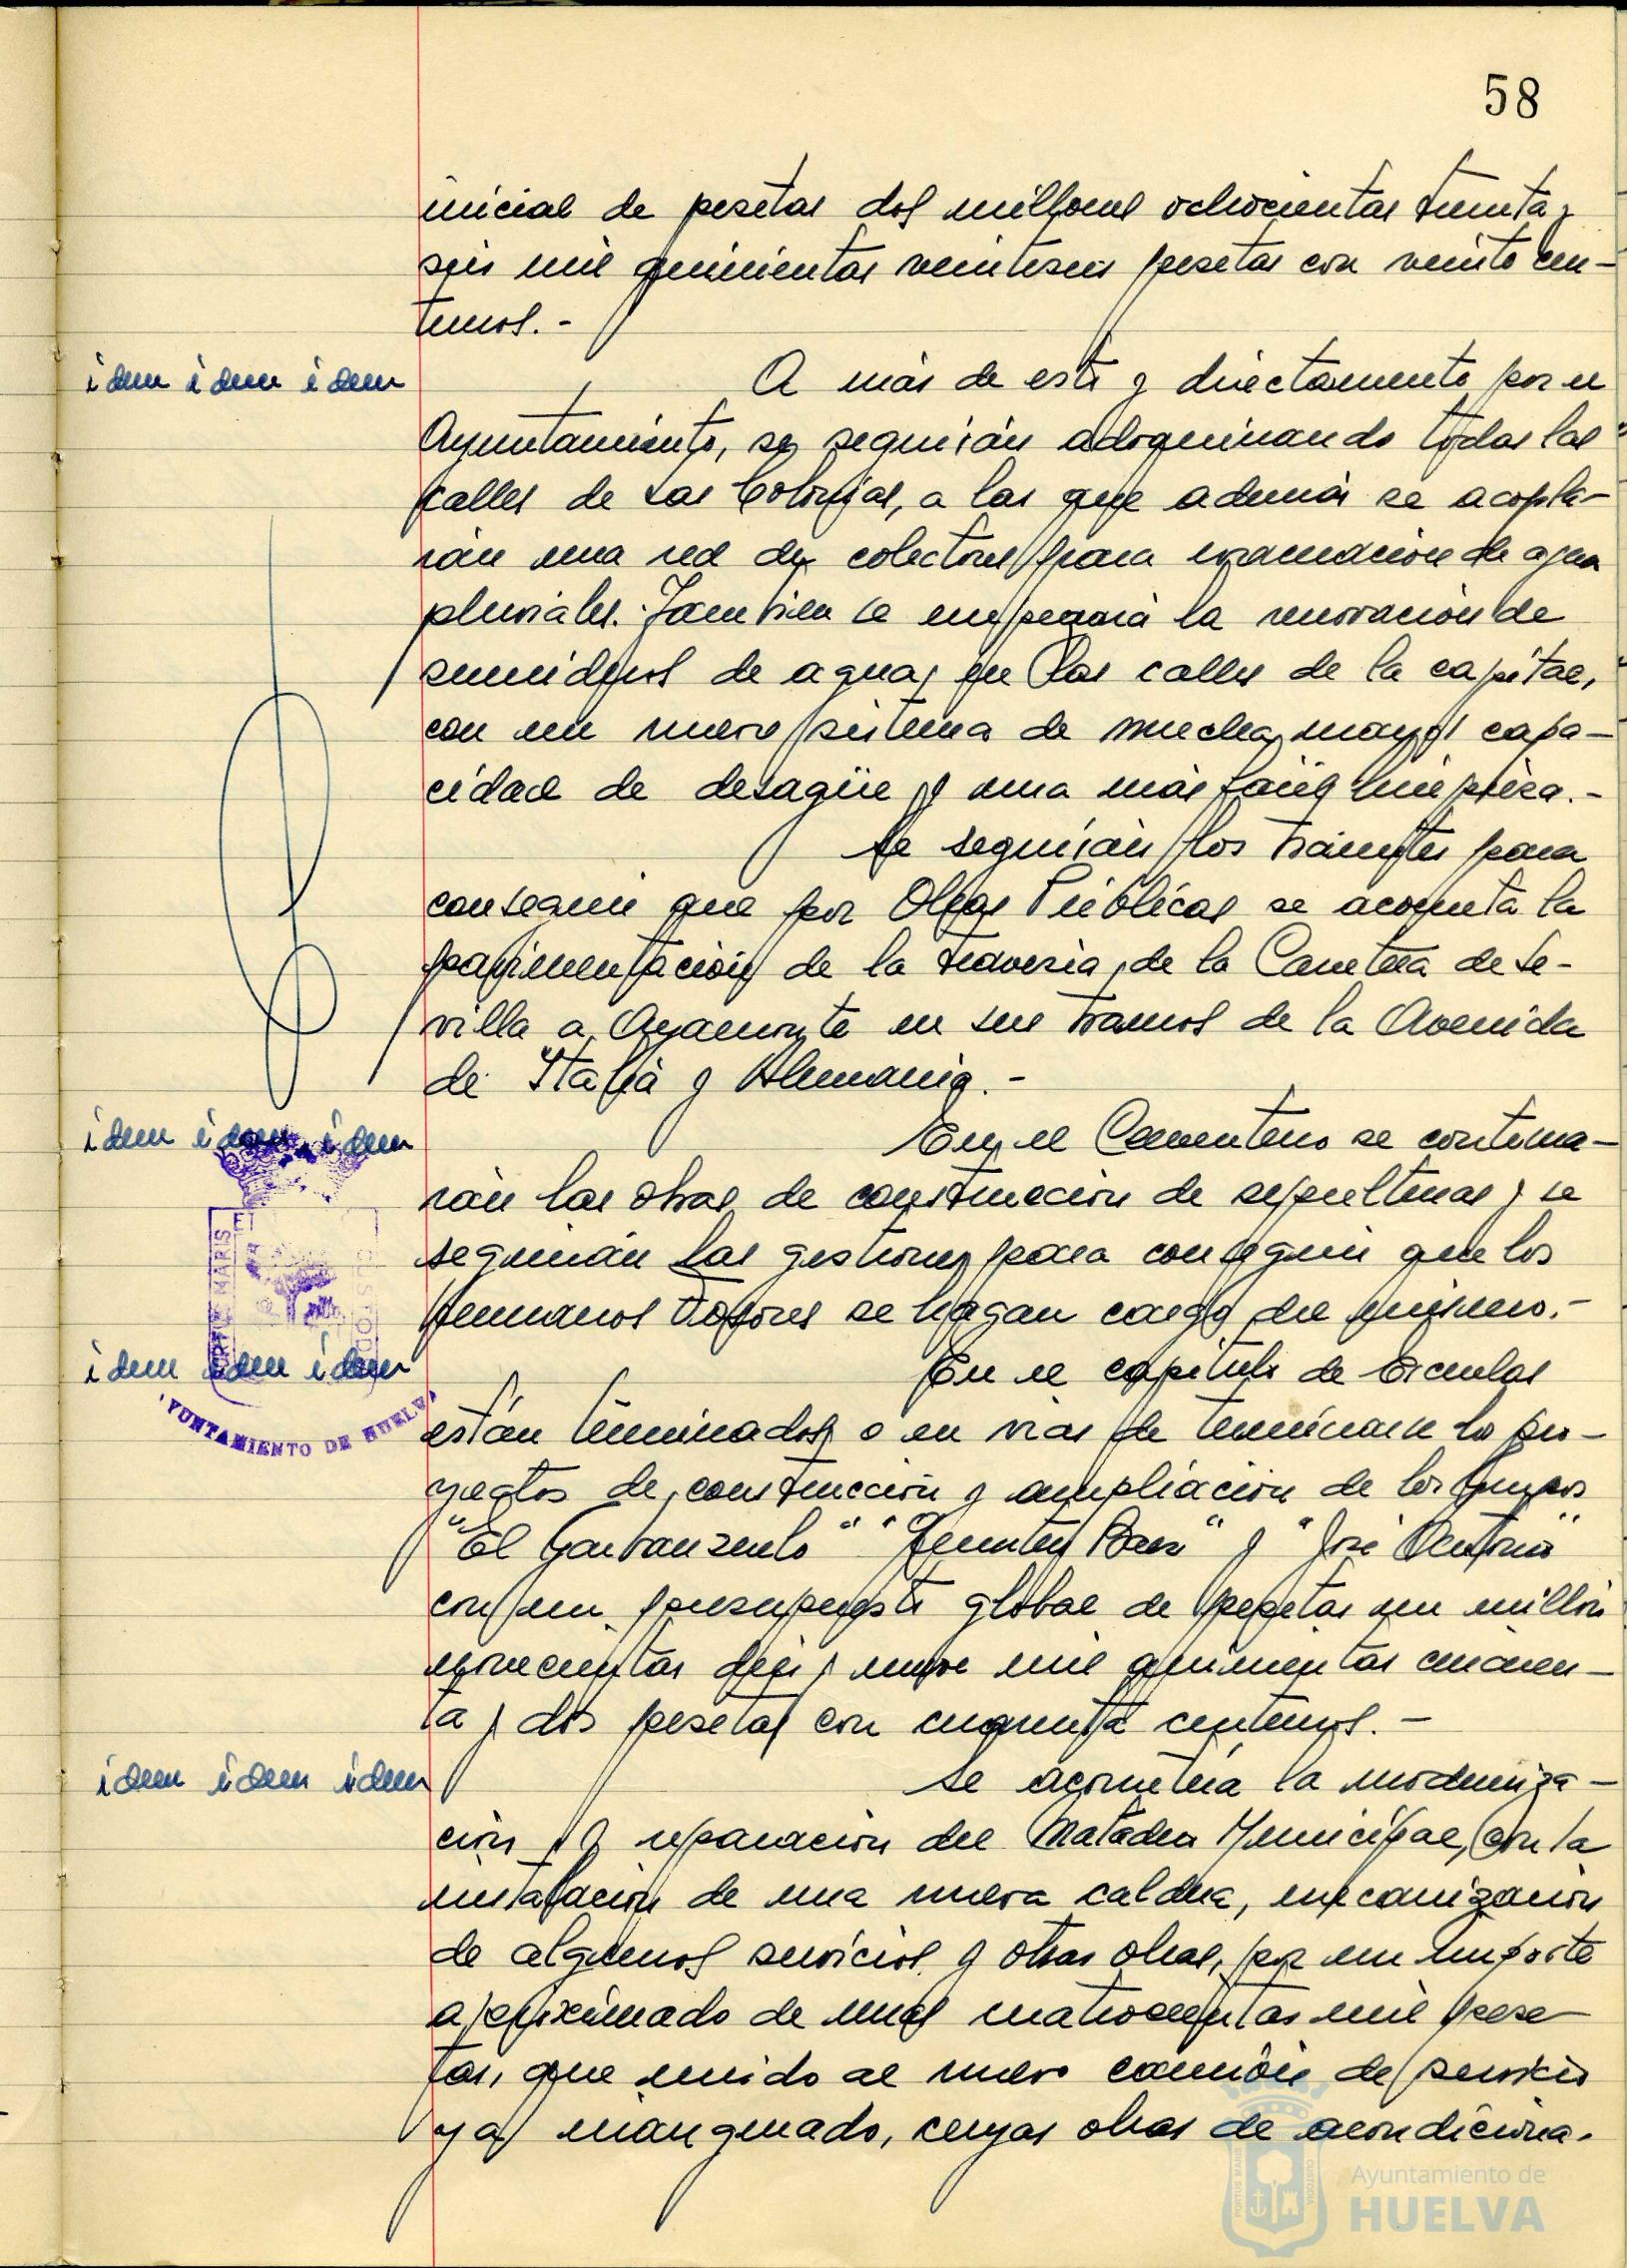 58
inicial de pesetas dos millones ochocientas treinta y
seis mil quinientas veintiseis pesetas con veinte cen-
timos.-
idem idem idem
A más de esto y directamente por el
Ayuntamiento, se seguirán adoquinando todas las
calles de las Colonias, a las que además se acopla-
rán una red de colectores para evacuación de agua
pluviales. Tambien se empezará la renovación de
sumideros de aguas en las calles de la capital,
con un nuevo sistema de mucha mayor capa-
cidad de desagüe y una más fácil limpieza.-
Se seguirán los trámites para
conseguir que por Obras Públicas se acometa la
pavimentación de la travesia de la Carretera de Se-
villa a Ayamonte en sus tramos de la Avenida
de Italia y Alemania.-
idem idem idem
En el Cementerio se continua-
rán las obras de construcción de sepulturas y se
seguirán las gestiones para conseguir que los
Hermanos Fosores se hagan cargo del mismo.-
idem idem idem
En el capítulo de Escuelas
están terminados o en vias de terminarse los pro-
yectos de construcción y ampliación de los Grupos
"El Garbanzuelo" " Báez" y "José Antonio"
con un presupuesto global de pesetas un millón
novecientas diez y nueve mil quinientas cincuen-
ta y dos pesetas con cincuenta centimos.-
idem idem idem
Se acometerá la moderniza-
ción y reparación del Matadero Municipal, con la
instalación de una nueva caldera, mecanización
de algunos servicios y otras obras, por un importe
aproximado de unas cuatrocientas mil pese-
tas, que unido al nuevo camión de servicio
ya inaugurado, cuyas obras de acondiciona-
PORTUS MARIS ET
CUSTODIA
AYUNTAMIENTO DE HUELVA
Ayuntamiento de
HUELVA